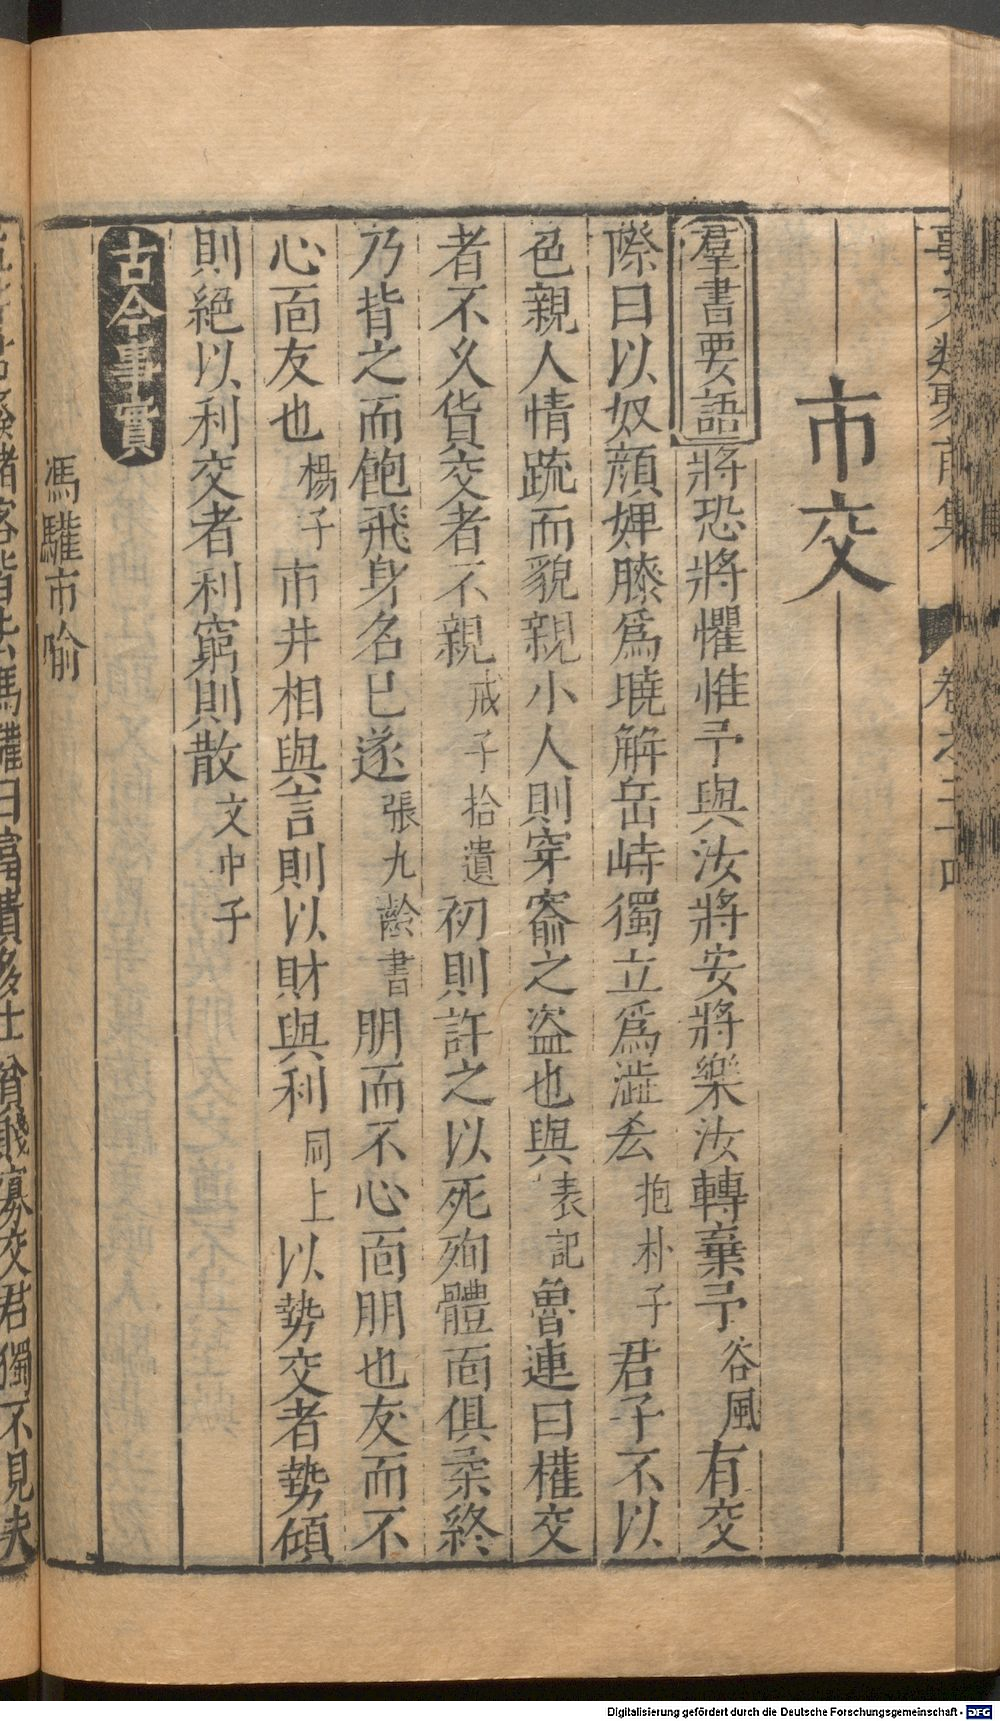 事文類聚前集 卷之二十四 八
市交
羣書要語 將恐將懼惟予與汝將安將樂汝轉棄予谷風有交
際曰以奴顏婢膝爲曉解岳峙獨立爲澁㳒抱朴子君子不以
色親人情疏而貌親小人則穿窬之盜也與表記魯連曰權交
者不久貨交者不親戒子拾遺初則許之以死殉體面俱柔終
乃背之而飽飛身名已遂張九齡書朋而不心面朋也友而不
心面友也楊子市井相與言則以財與利同上以勢交者勢傾
則絕以利交者利窮則散文中子
古今事實
馮驩市喻
諸客皆去馮驩曰富貴多士貧賤寡交君獨不見夫
Digitalisierung gefördert durch die Deutsche Forschungsgemeinschaft - DFG